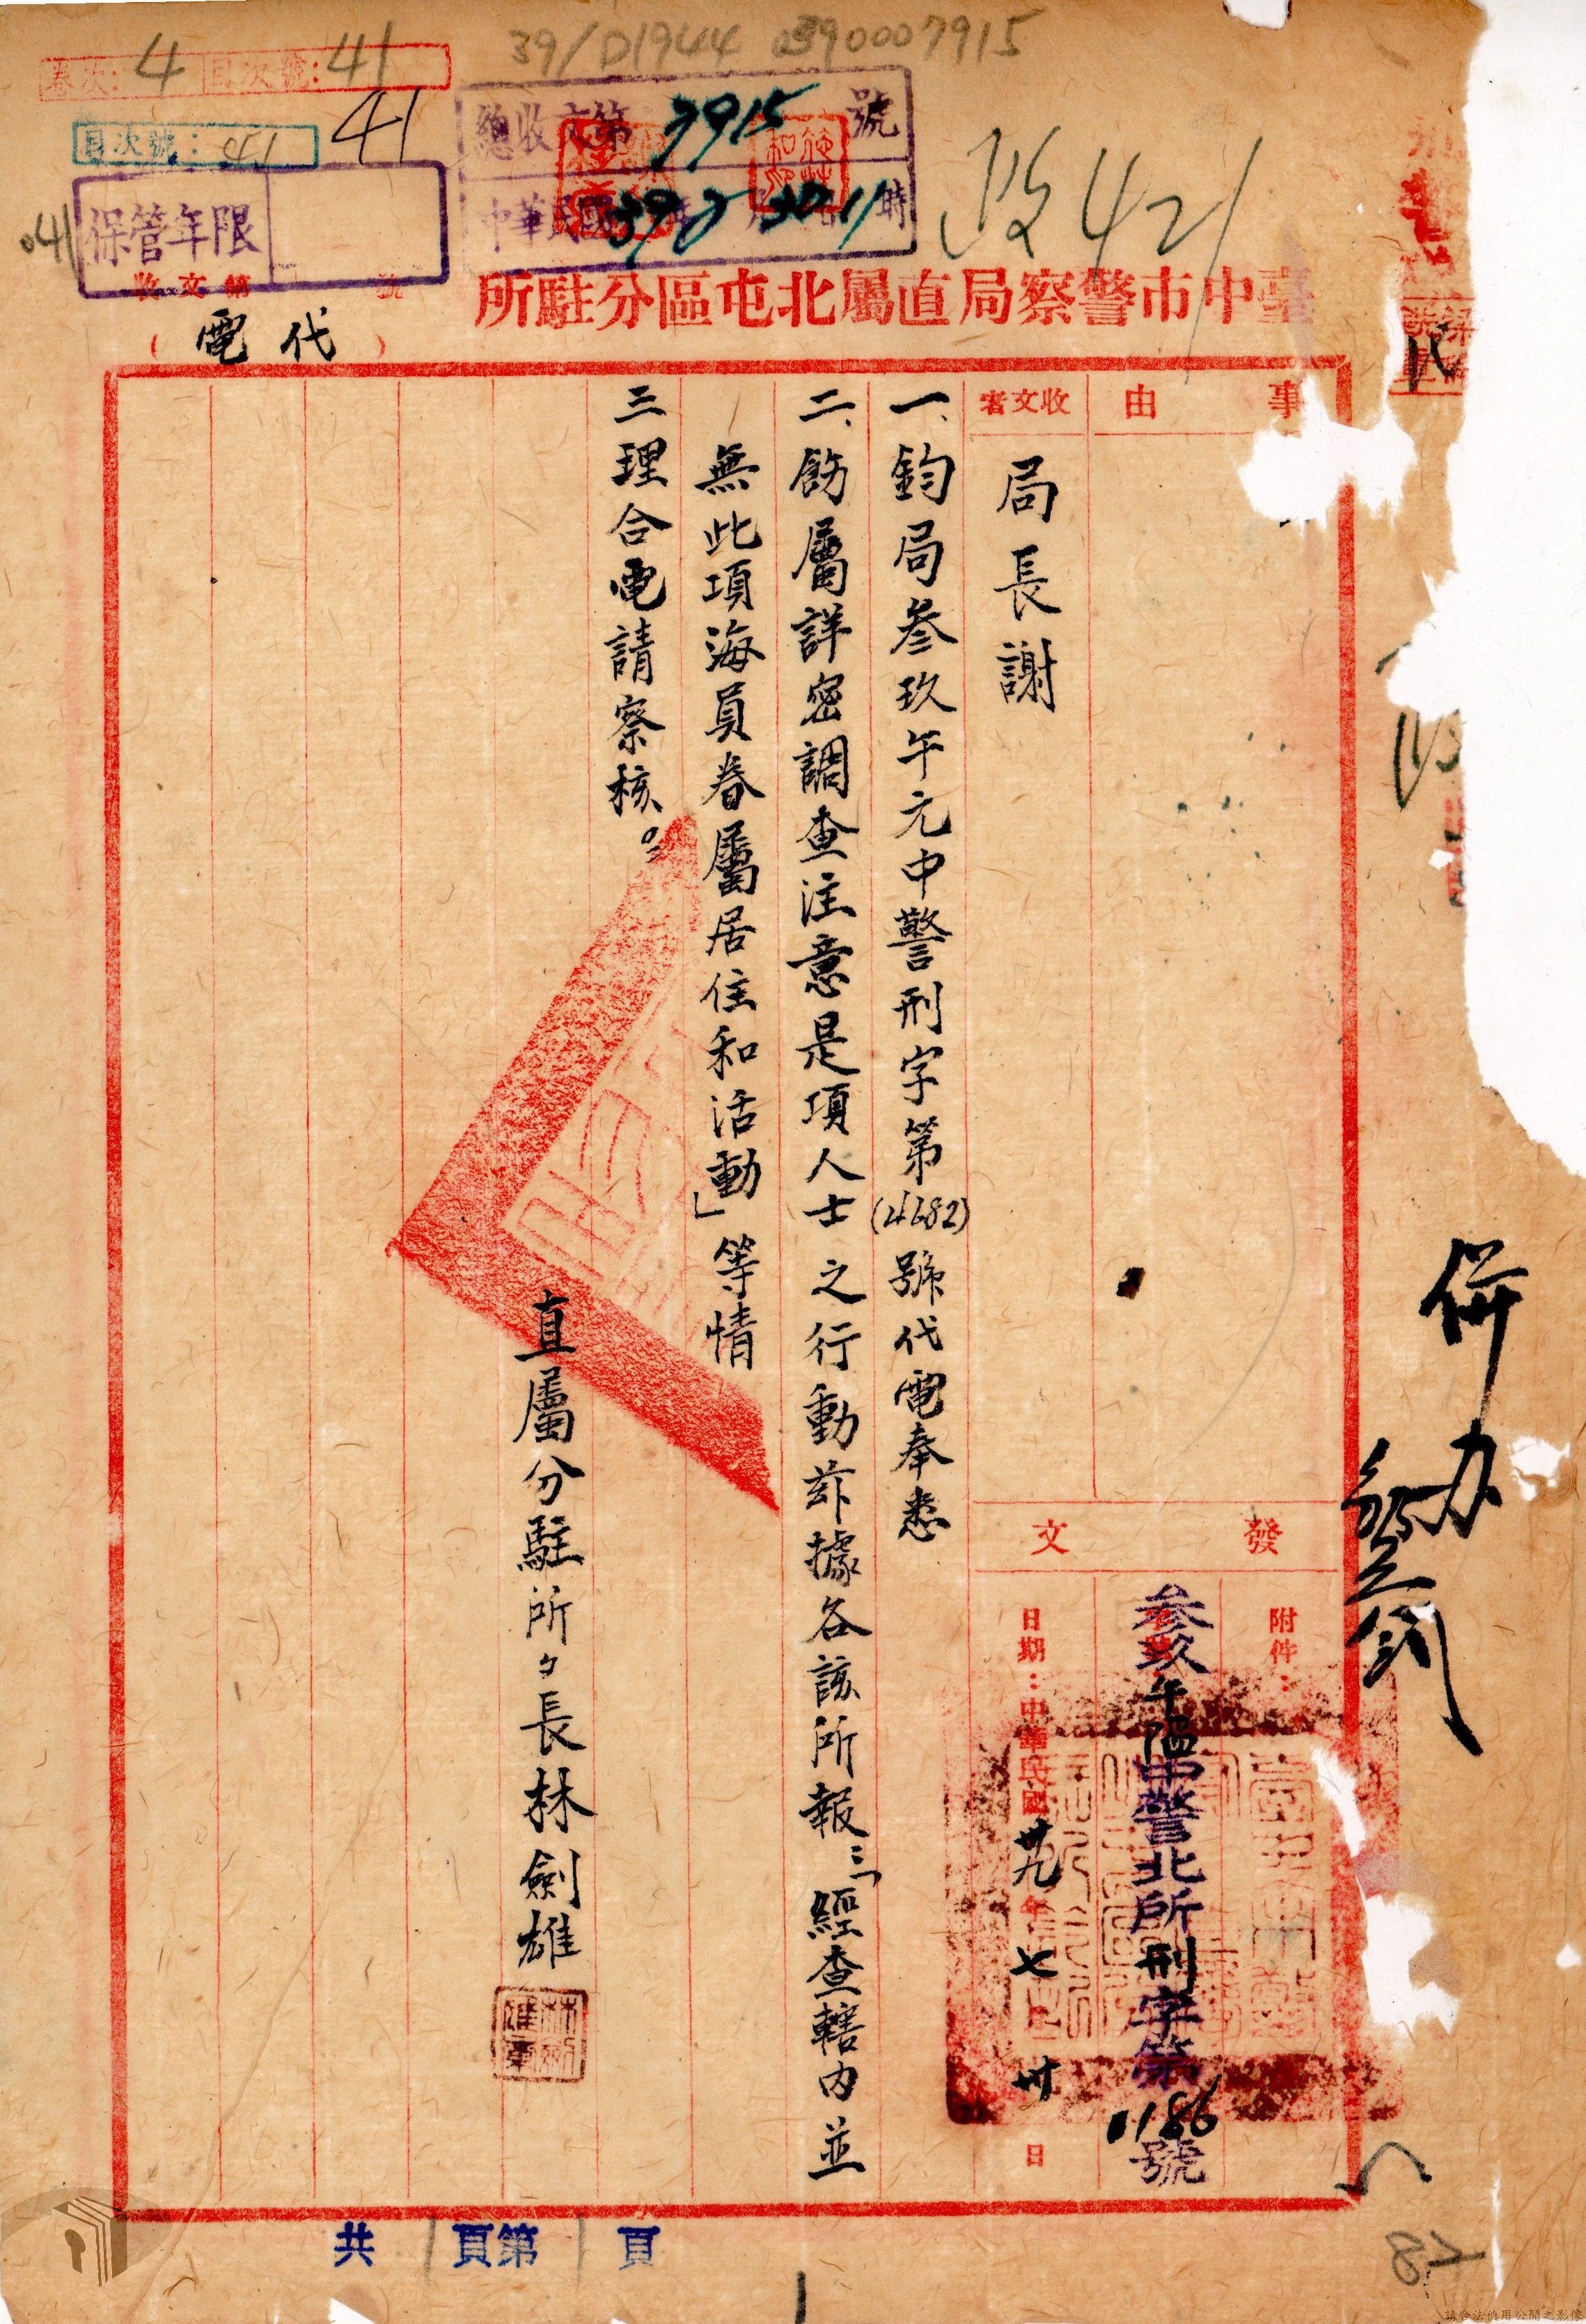 39/D1944 0390007915
卷次：4 目次號：41
目次號：041 41
總收文第7915號
中華民國39 7 30 11時
041
保管年限
收文第 號
（代電）
臺中市警察局直屬北屯區分駐所
事由
收文者
局長謝
發文
附件：
參玖午陷中警北所刑字第1186號
日期：中華民國卅九年七月卅日
一、鈞局參玖午元中警刑字第(4682)號代電奉悉
二、飭屬詳密調查注意是項人士之行動茲據各該所報：「經查轄內並
無此項海員眷屬居住和活動」等情
三理合電請察核。
直屬分駐所々長林劍雄
併办
共1頁第1頁